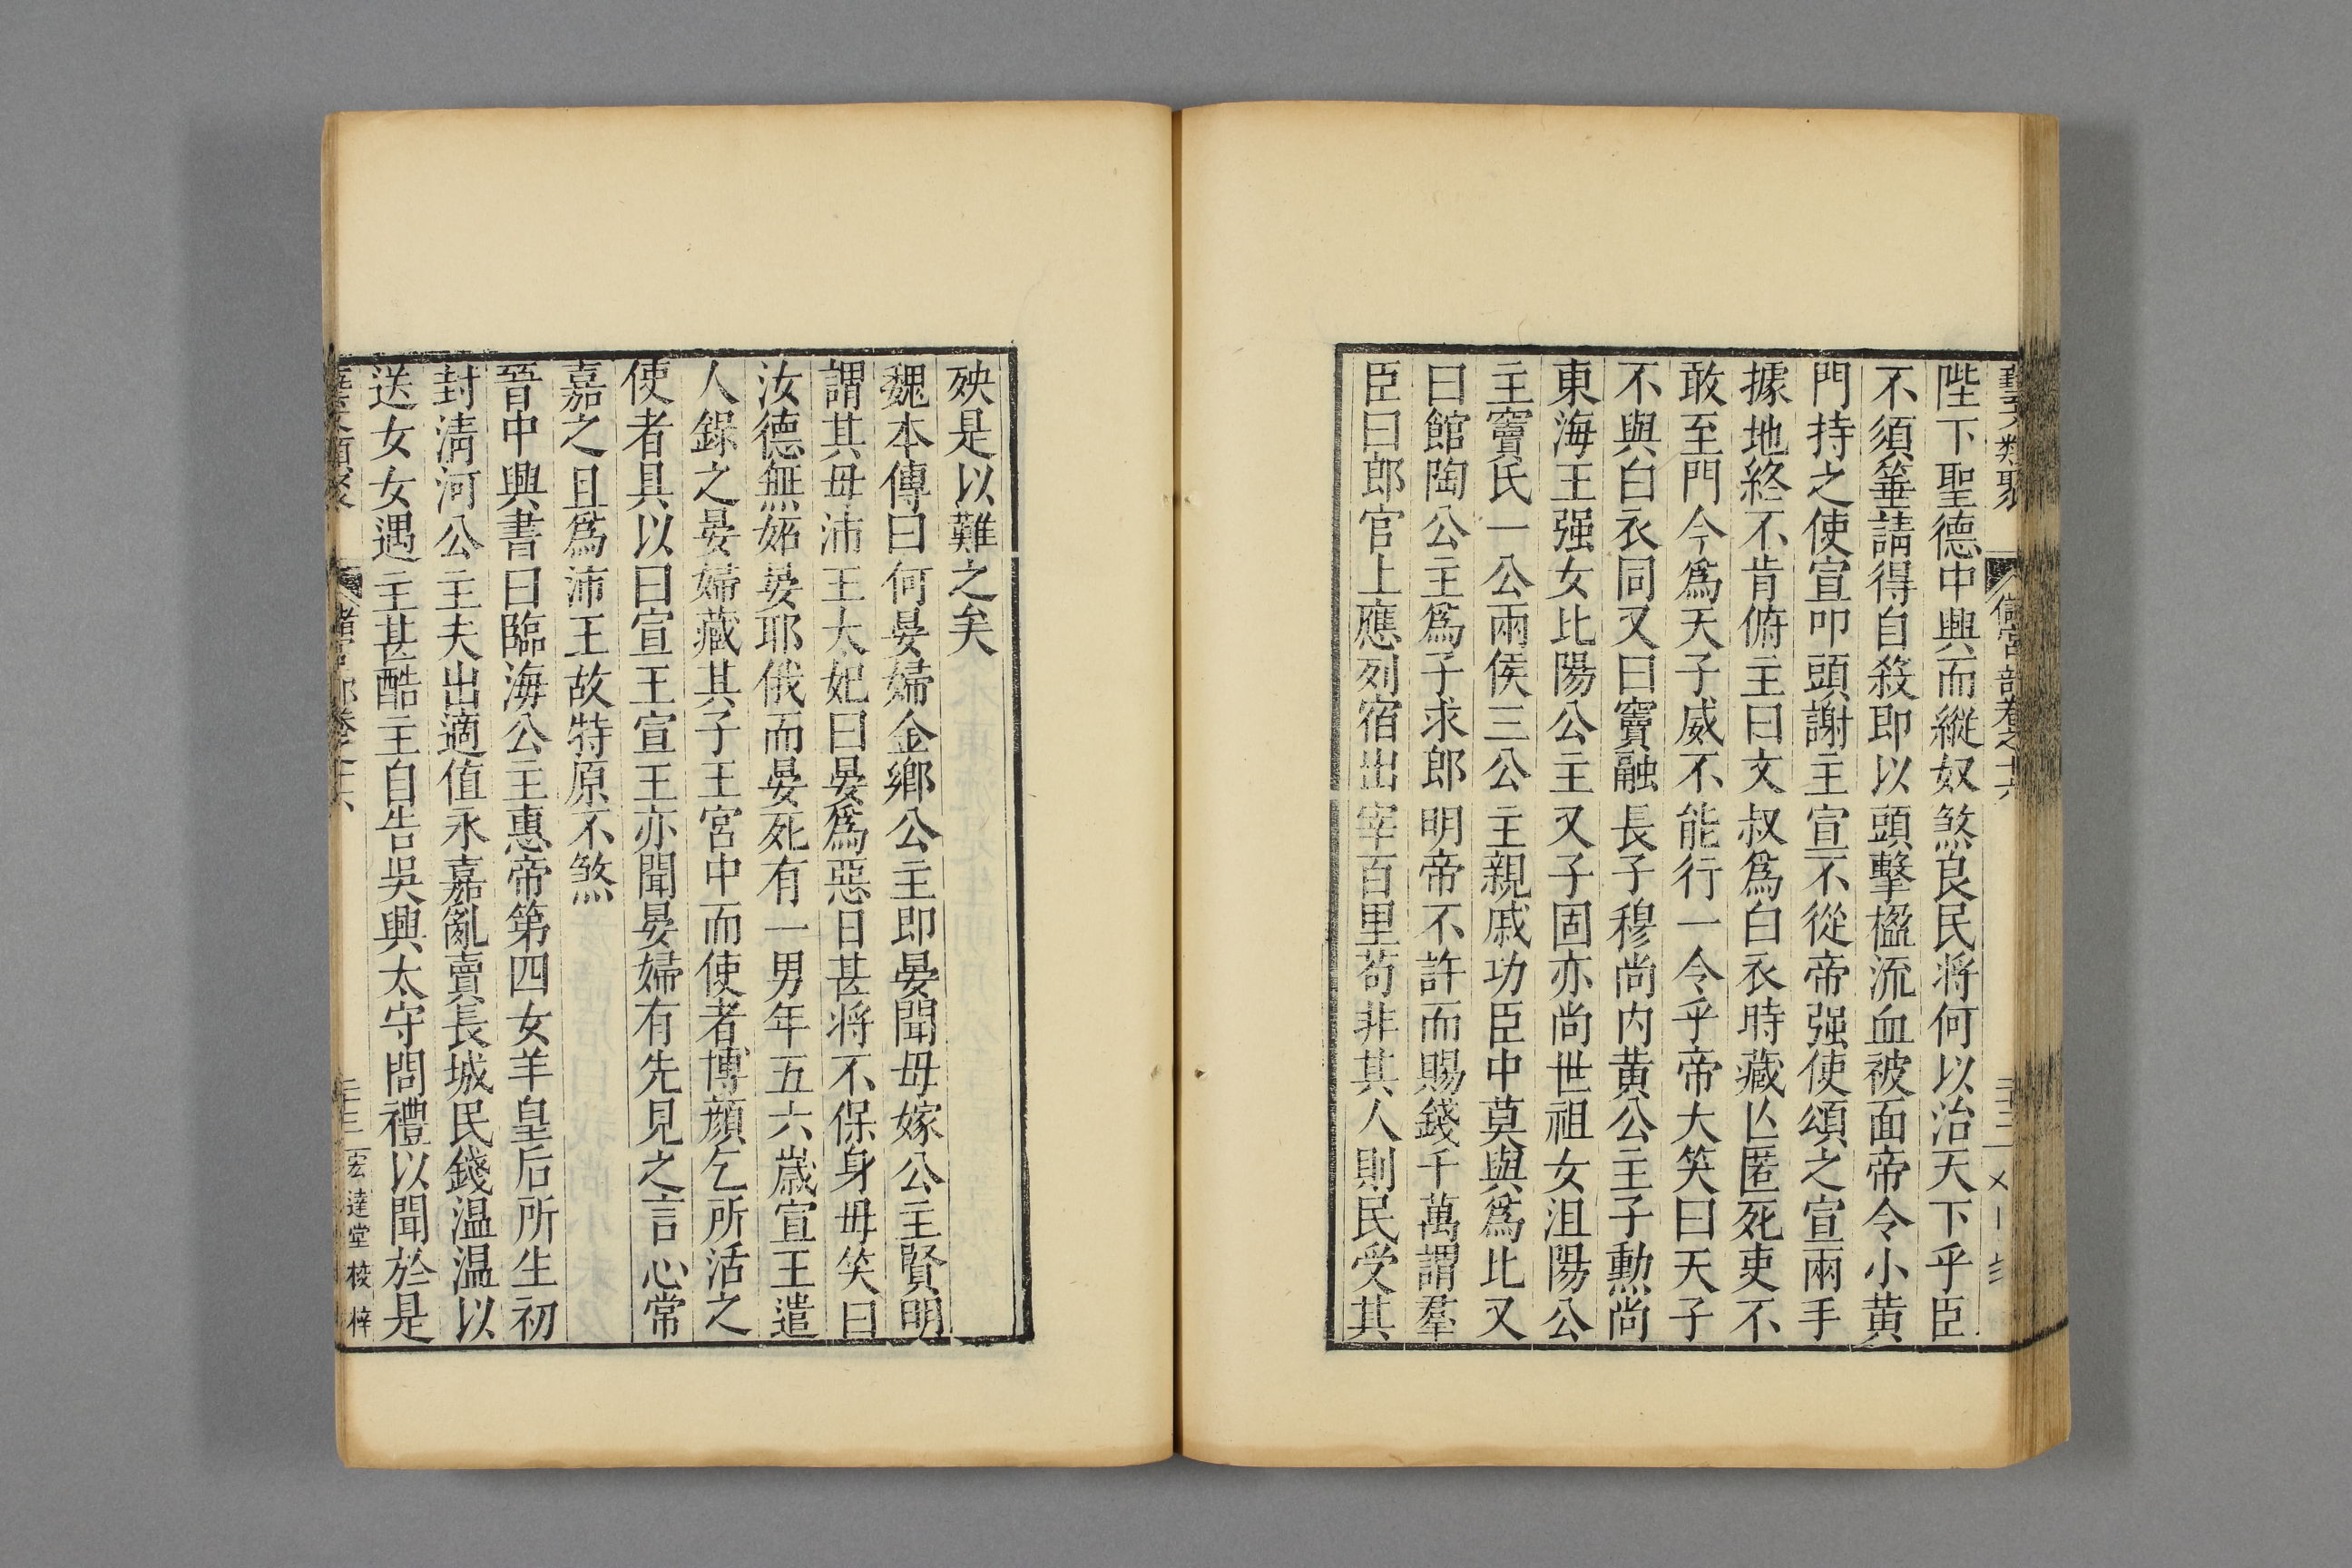 藝文類聚 儲宮部卷之十六 二十三
陛下聖德中興而縱奴煞良民將何以治天下乎臣
不須箠請得自殺即以頭擊楹流血被面帝令小黃
門持之使宣叩頭謝主宣不從帝强使頌之宣兩手
據地終不肯俯主曰文叔爲白衣時藏亾匿死吏不
敢至門今爲天子威不能行一令乎帝大笑曰天子
不與白衣同又曰竇融長子穆尚内黃公主子勲尚
東海王强女比陽公主又子固亦尚世祖女沮陽公
主竇氏一公兩侯三公主親戚功臣中莫與爲比又
曰館陶公主爲子求郎明帝不許而賜錢千萬謂羣
臣曰郎官上應列宿出宰百里苟非其人則民受其
殃是以難之矣
魏本傳曰何晏婦金鄉公主即晏聞毋嫁公主賢明
謂其毋沛王太妃曰晏爲惡日甚將不保身毋笑曰
汝德無妬晏耶俄而晏死有一男年五六歲宣王遣
人錄之晏婦藏其子王宮中而使者博顔乞所活之
使者具以曰宣王宣王亦聞晏婦有先見之言心常
嘉之且爲沛王故特原不煞
晉中興書曰臨海公主惠帝第四女羊皇后所生初
封清河公主夫出適值永嘉亂賣長城民錢温温以
送女女遇主甚酷主自告吳興太守問禮以聞於是
藝文類聚 儲宮部卷之十六 二十三 宏達堂校梓